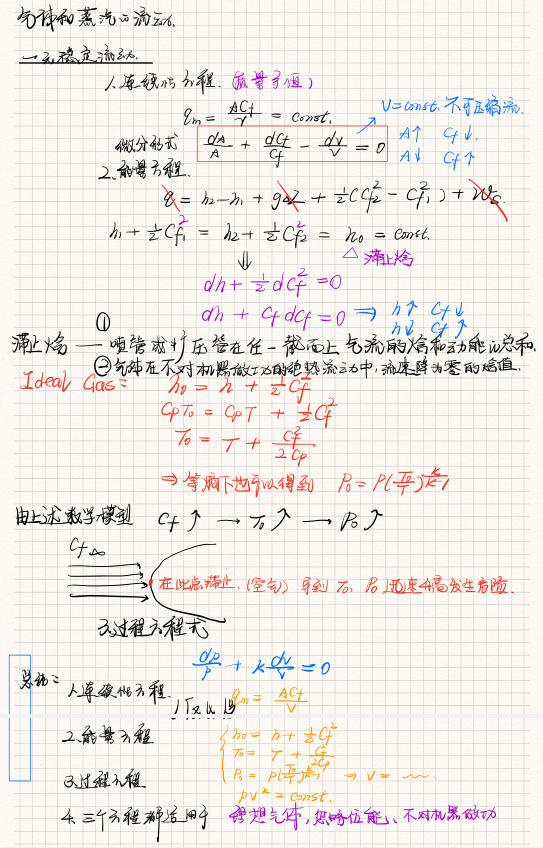 气体和蒸汽的流动.
一元稳定流动.
1.连续性方程. (质量守恒)
qm = ACf/v = const.
v=const. 不可压缩流.
微分形式 dA/A + dCf/Cf - dv/v = 0
A↑ Cf↓.
A↓ Cf↑
2.能量方程.
q = h2-h1 + gΔZ + ½(Cf2² - Cf1²) + Ws.
h1 + ½Cf1² = h2 + ½Cf2² = h0 = const.
△ 滞止焓
⇓
dh + ½dCf² = 0
dh + CfdCf = 0 ⇒ h↑ Cf↓
h↓ Cf↑
①
滞止焓 —— 喷管或扩压管在任一截面上气流的焓和动能的总和.
②气体在不对机器做功的绝热流动中,流速降为零的焓值.
Ideal Gas: h0 = h + ½Cf²
CpT0 = CpT + ½Cf²
T0 = T + Cf²/2Cp
⇒ 等熵下也可以得到 P0 = P(T0/T)^k/k-1
由上述数学模型 Cf ↑ → T0 ↑ → P0 ↑
Cf∞
在此点滞止. (空气) 导到 T0, P0 迅速升高发生危险.
3.过程方程式
dp/p + k dv/v = 0
总结:
1.连续性方程. qm = ACf/v
2.能量方程 h0 = h + ½Cf²
T0 = T + Cf²/2Cp
P0 = P(T0/T)^k/k-1 ⇒ v = ~~.
3.过程方程 pv^k = const.
4.三个方程都适用于 理想气体, 忽略位能、不对机器做功